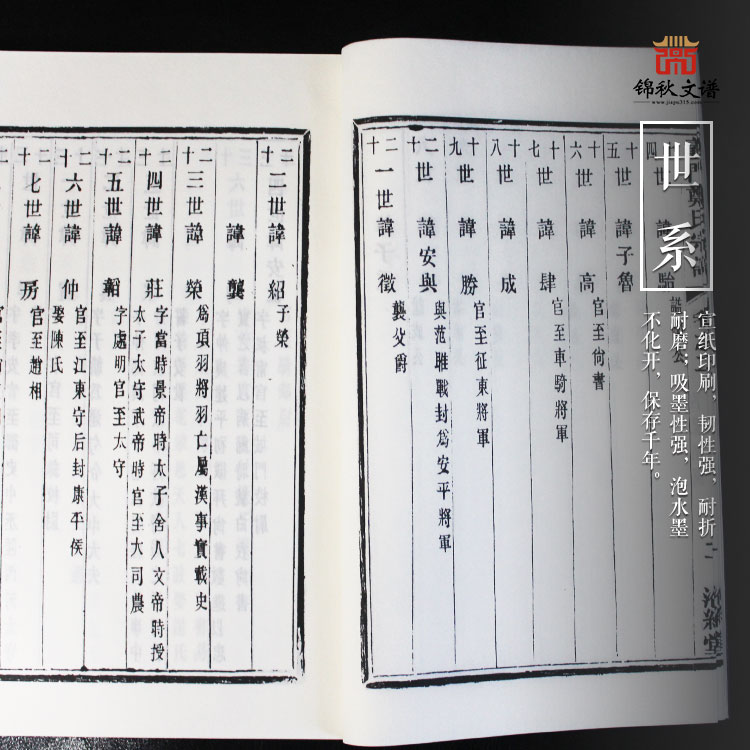 锦秋文谱
www.jiapu315.com
世系
宣纸印刷，韧性强，耐折
耐磨；吸墨性强，泡水墨
不化开，保存千年。
四世諱
十五世諱子魯
十六世諱高 官至尚書
十七世諱肆 官至車騎將軍
十八世諱成
十九世諱勝 官至征東將軍
二十世諱安與 與范雎戰封爲安平將軍
二十一世諱子徵 襲父爵
二十二世諱紹 子榮
諱龔
二十三世諱榮 爲項羽將羽亡屬漢事實載史
二十四世諱莊 字當時景帝時太子舍人文帝時授
太子太守武帝時官至大司農
二十五世諱 字虛明官至太守
二十六世諱仲 官至江東守后封康平侯
娶陳氏
二十七世諱房 官至趙相